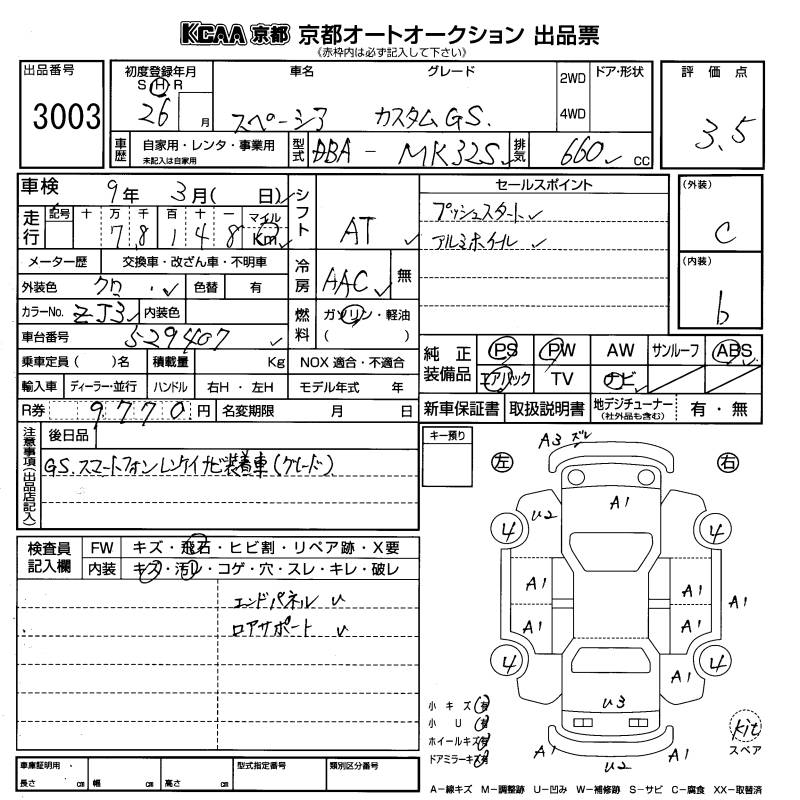 KCAA 京都 京都オートオークション 出品票
《赤枠内は必ず記入して下さい》
出品番号
3003
初度登録年月
S H R
26 月
車名
スペーシア
グレード
カスタムGS.
2WD
4WD
ドア・形状
評価点
3.5
車歴
自家用・レンタ・事業用
未記入は自家用
型式
DBA - MK32S
排気
660 cc
車検
9年 3月( 日)
シフト
AT
走行
記号 十 万 千 百 十 一 マイル
7 8 1 4 8 Km
メーター歴 交換車・改ざん車・不明車
冷房
AAC
無
外装色 クロ
色替 有
カラーNo. ZJ3
内装色
燃料
ガソリン・軽油
( )
車台番号 529407
乗車定員( )名
積載量 Kg
NOX 適合・不適合
輸入車 ディーラー・並行
ハンドル 右H・左H
モデル年式 年
R券 9770円
名変期限 月 日
セールスポイント
プッシュスタート
アルミホイール
(外装)
C
(内装)
b
純正装備品
PS PW AW サンルーフ ABS
エアバック TV ナビ
新車保証書 取扱説明書
地デジチューナー
(社外品も含む)
有・無
注意事項(出品店記入)
後日品
GS.スマートフォンレンケイナビ装着車(グレード)
キー預り
検査員記入欄
FW キズ・飛石・ヒビ割・リペア跡・X要
内装 キズ・汚レ・コゲ・穴・スレ・キレ・破レ
エンドパネル U
ロアサポート U
左
右
A3 ズレ
A1
U2
4
4
A1
A1
A1
A1
A1
A1
4
4
U3
A1
U2
A1
小キズ 有
小U 有
ホイールキズ 有
ドアミラーキズ 有
kit
スペア
車庫証明用
長さ cm 幅 cm 高さ cm
型式指定番号
類別区分番号
A-線キズ M-調整跡 U-凹み W-補修跡 S-サビ C-腐食 XX-取替済